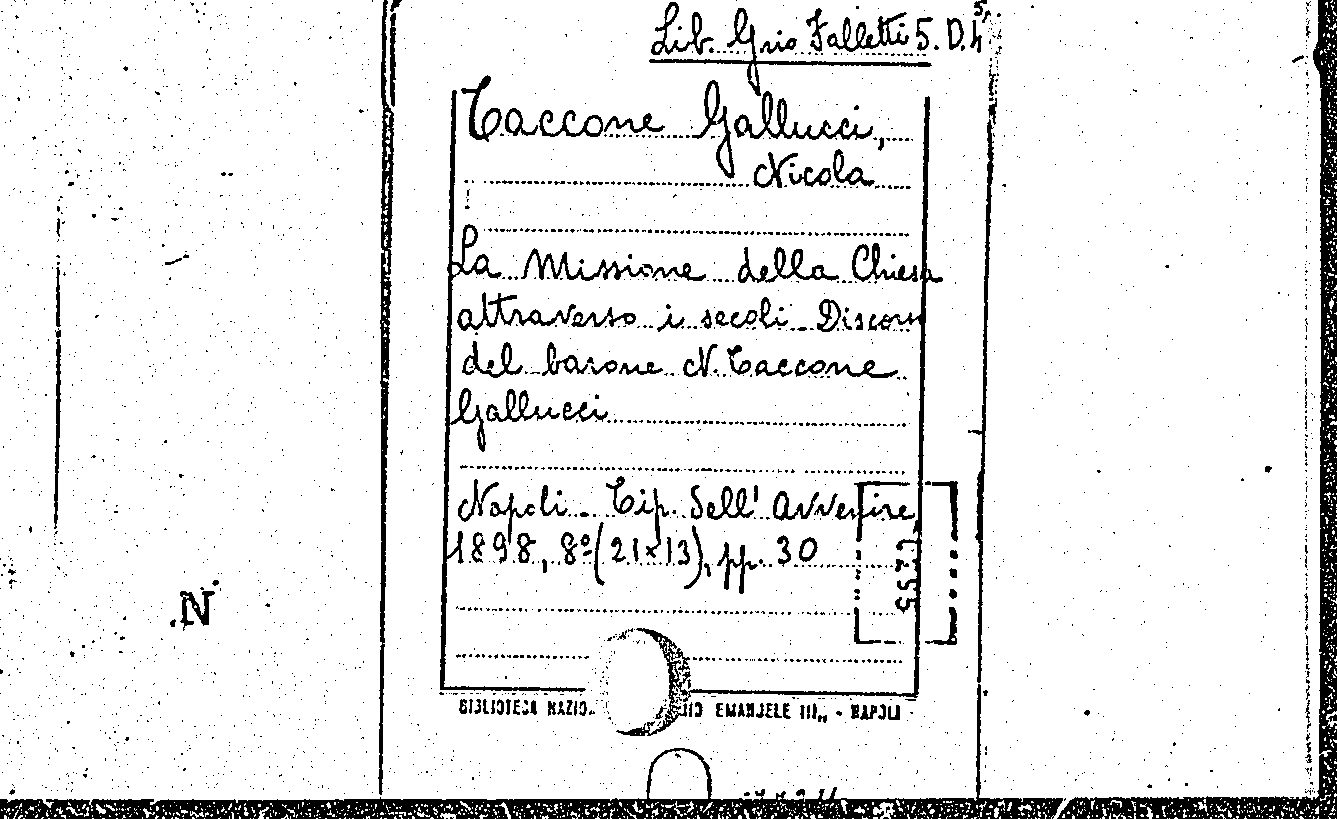 Lib. Grio Falletti 5. D. 4 5,
Taccone Gallucci,
Nicola
La Missione della Chiesa
attraverso i secoli. Discorso
del barone N. Taccone
Gallucci
Napoli. Tip. dell' Avvenire,
1898, 8º (21x13), pp. 30
BIBLIOTECA EMANUELE III,, - NAPOLI
.N